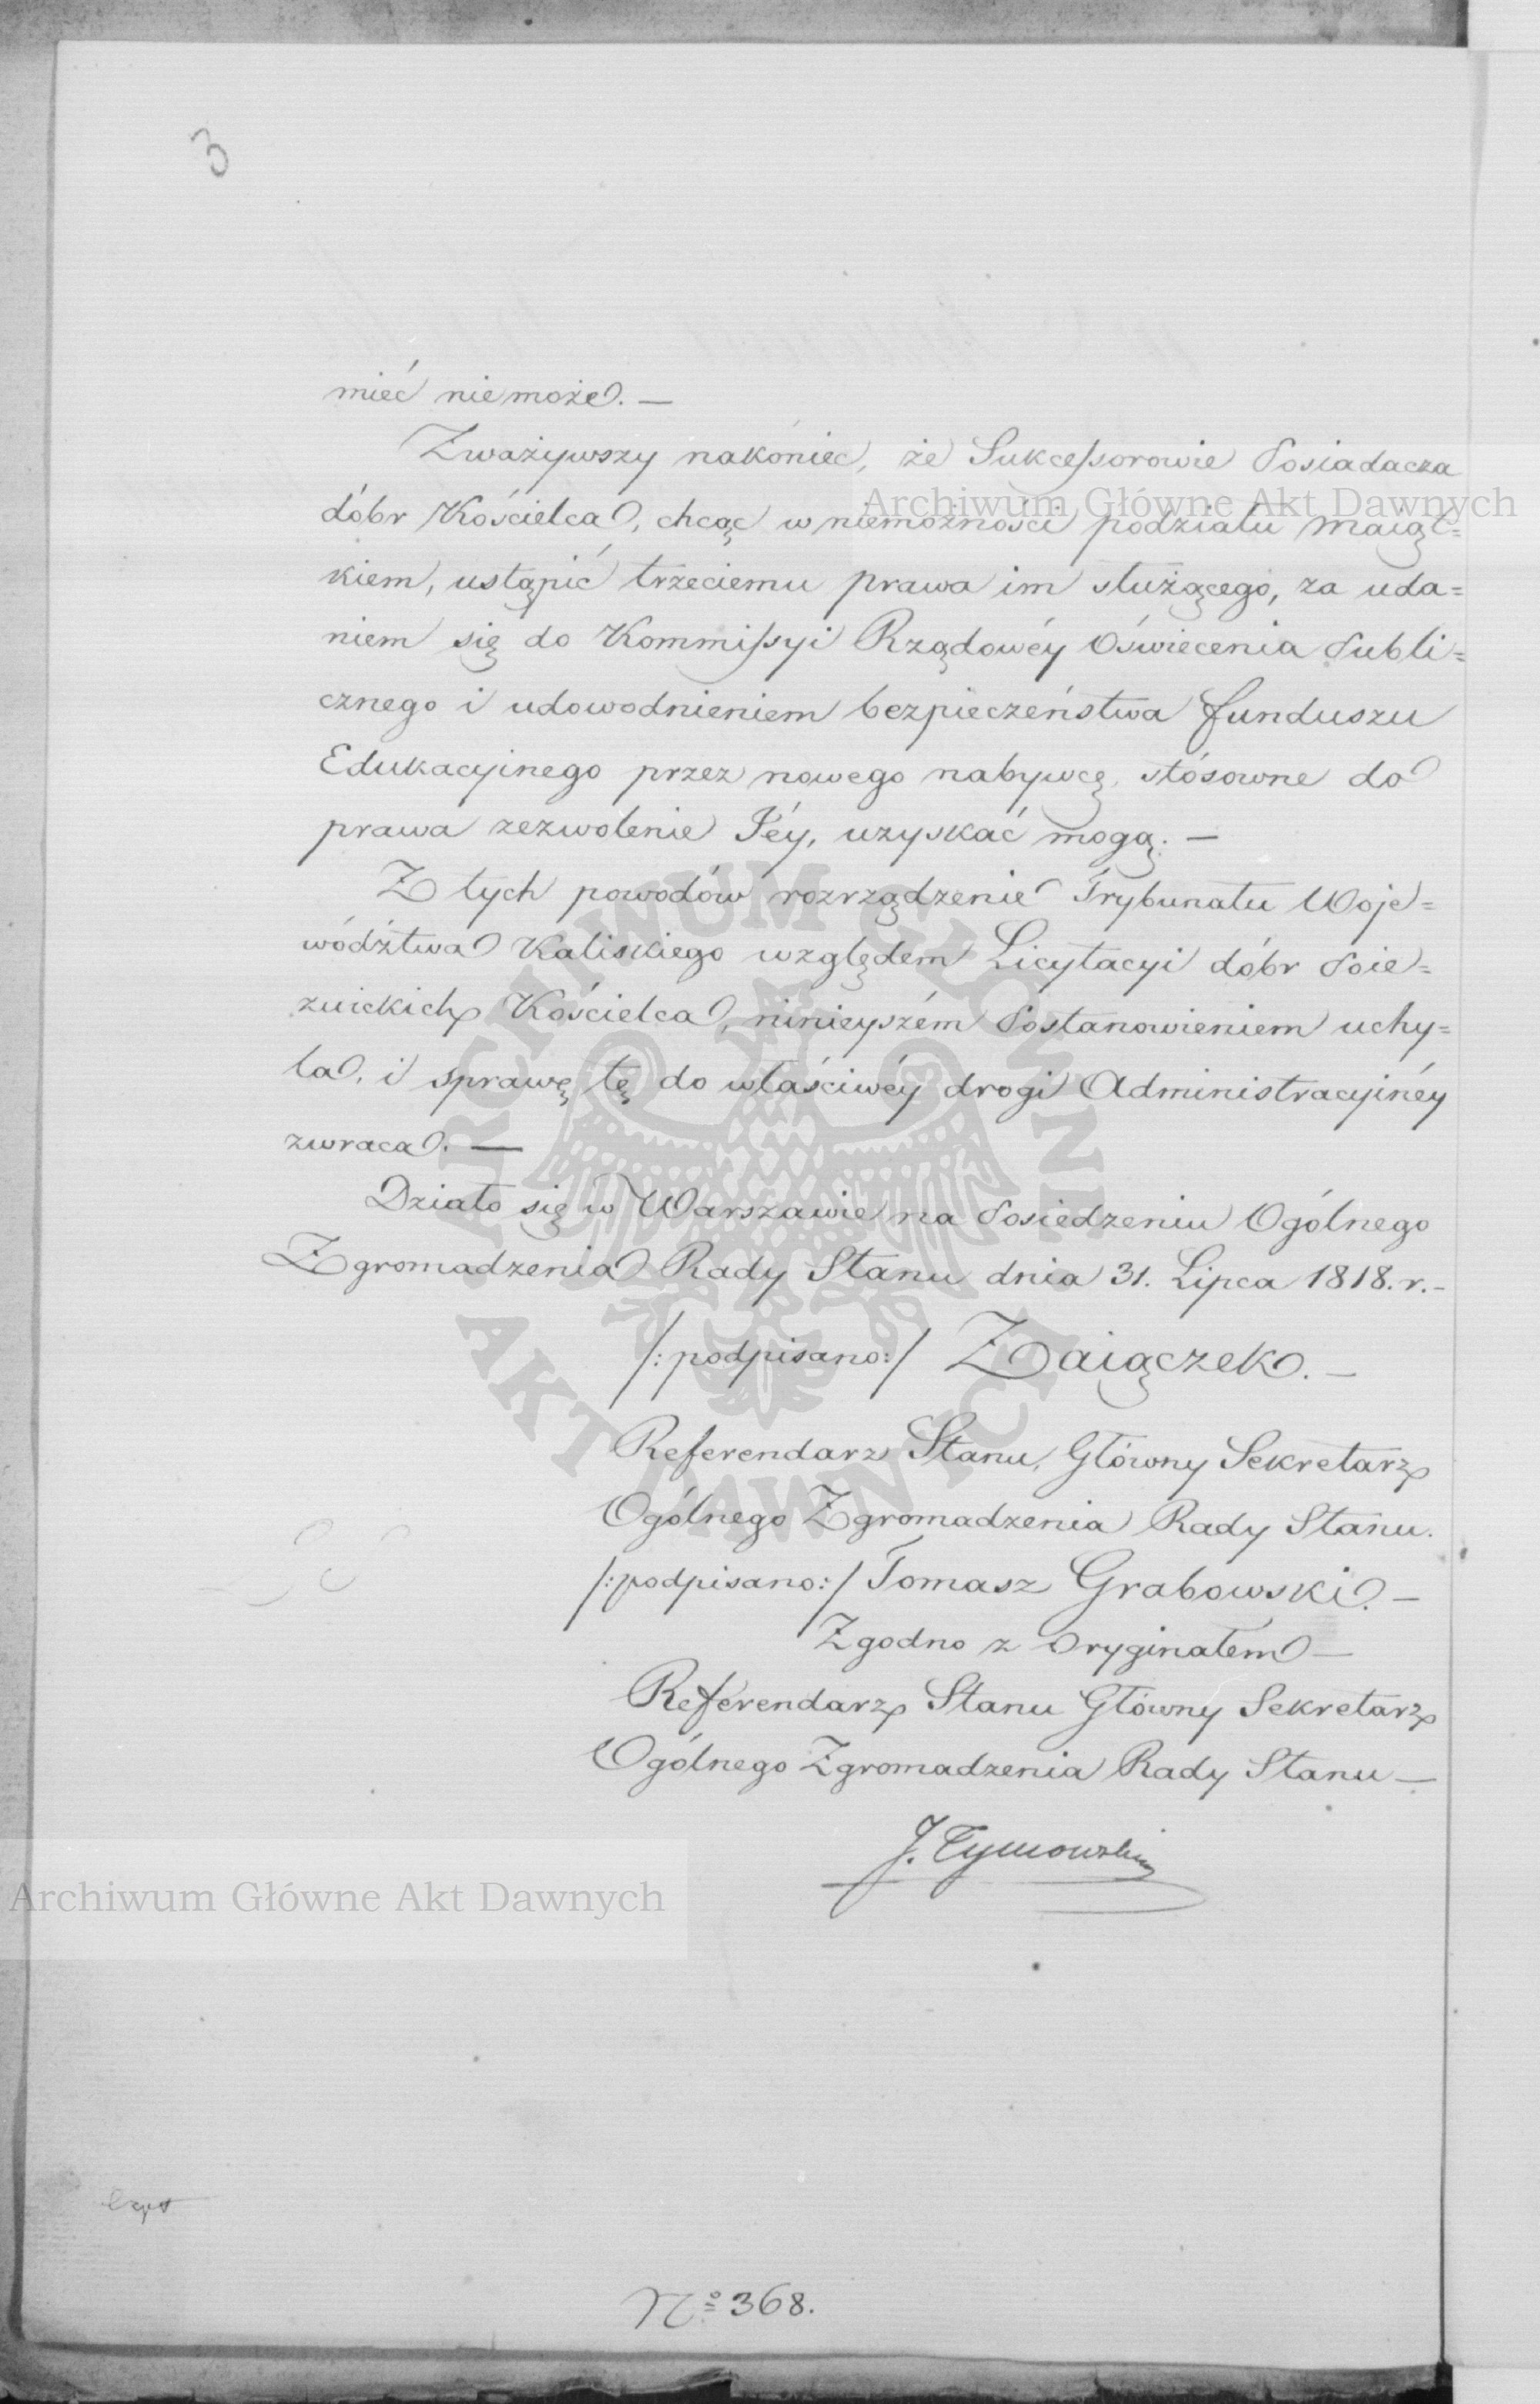 3
mieć niemoże. —
Zważywszy nakoniec, że Sukcessorowie Posiadacza
dóbr Kościelca, chcąc w niemożności podziału maiąt=
kiem, ustąpić trzeciemu prawa im służącego, za uda=
niem się do Kommissyi Rządowéy Oświecenia Publi=
cznego i udowodnieniem bezpieczeństwa funduszu
Edukacyinego przez nowego nabywcę, stósowne do
prawa zezwolenie Jéy, uzyskać mogą. —
Z tych powodów rozrządzenie Trybunału Woje=
wództwa Kaliskiego względem Licytacyi dóbr Poie=
zuickich Kościelca, ninieyszém Postanowieniem uchy=
la, i sprawę tę do właściwéy drogi Administracyinéy
zwraca. —
Działo się w Warszawie na Posiedzeniu Ogólnego
Zgromadzenia Rady Stanu dnia 31. Lipca 1818. r. -
/: podpisano: / Zaiączek. —
Referendarz Stanu, Główny Sekretarz
Ogólnego Zgromadzenia Rady Stanu.
/: podpisano: / Tomasz Grabowski. —
Zgodno z Oryginałem —
Referendarz Stanu Główny Sekretarz
Ogólnego Zgromadzenia Rady Stanu —
J. Tymowski
No 368.
Archiwum Główne Akt Dawnych
Archiwum Główne Akt Dawnych
ARCHIWUM GŁÓWNE
AKT DAWNYCH